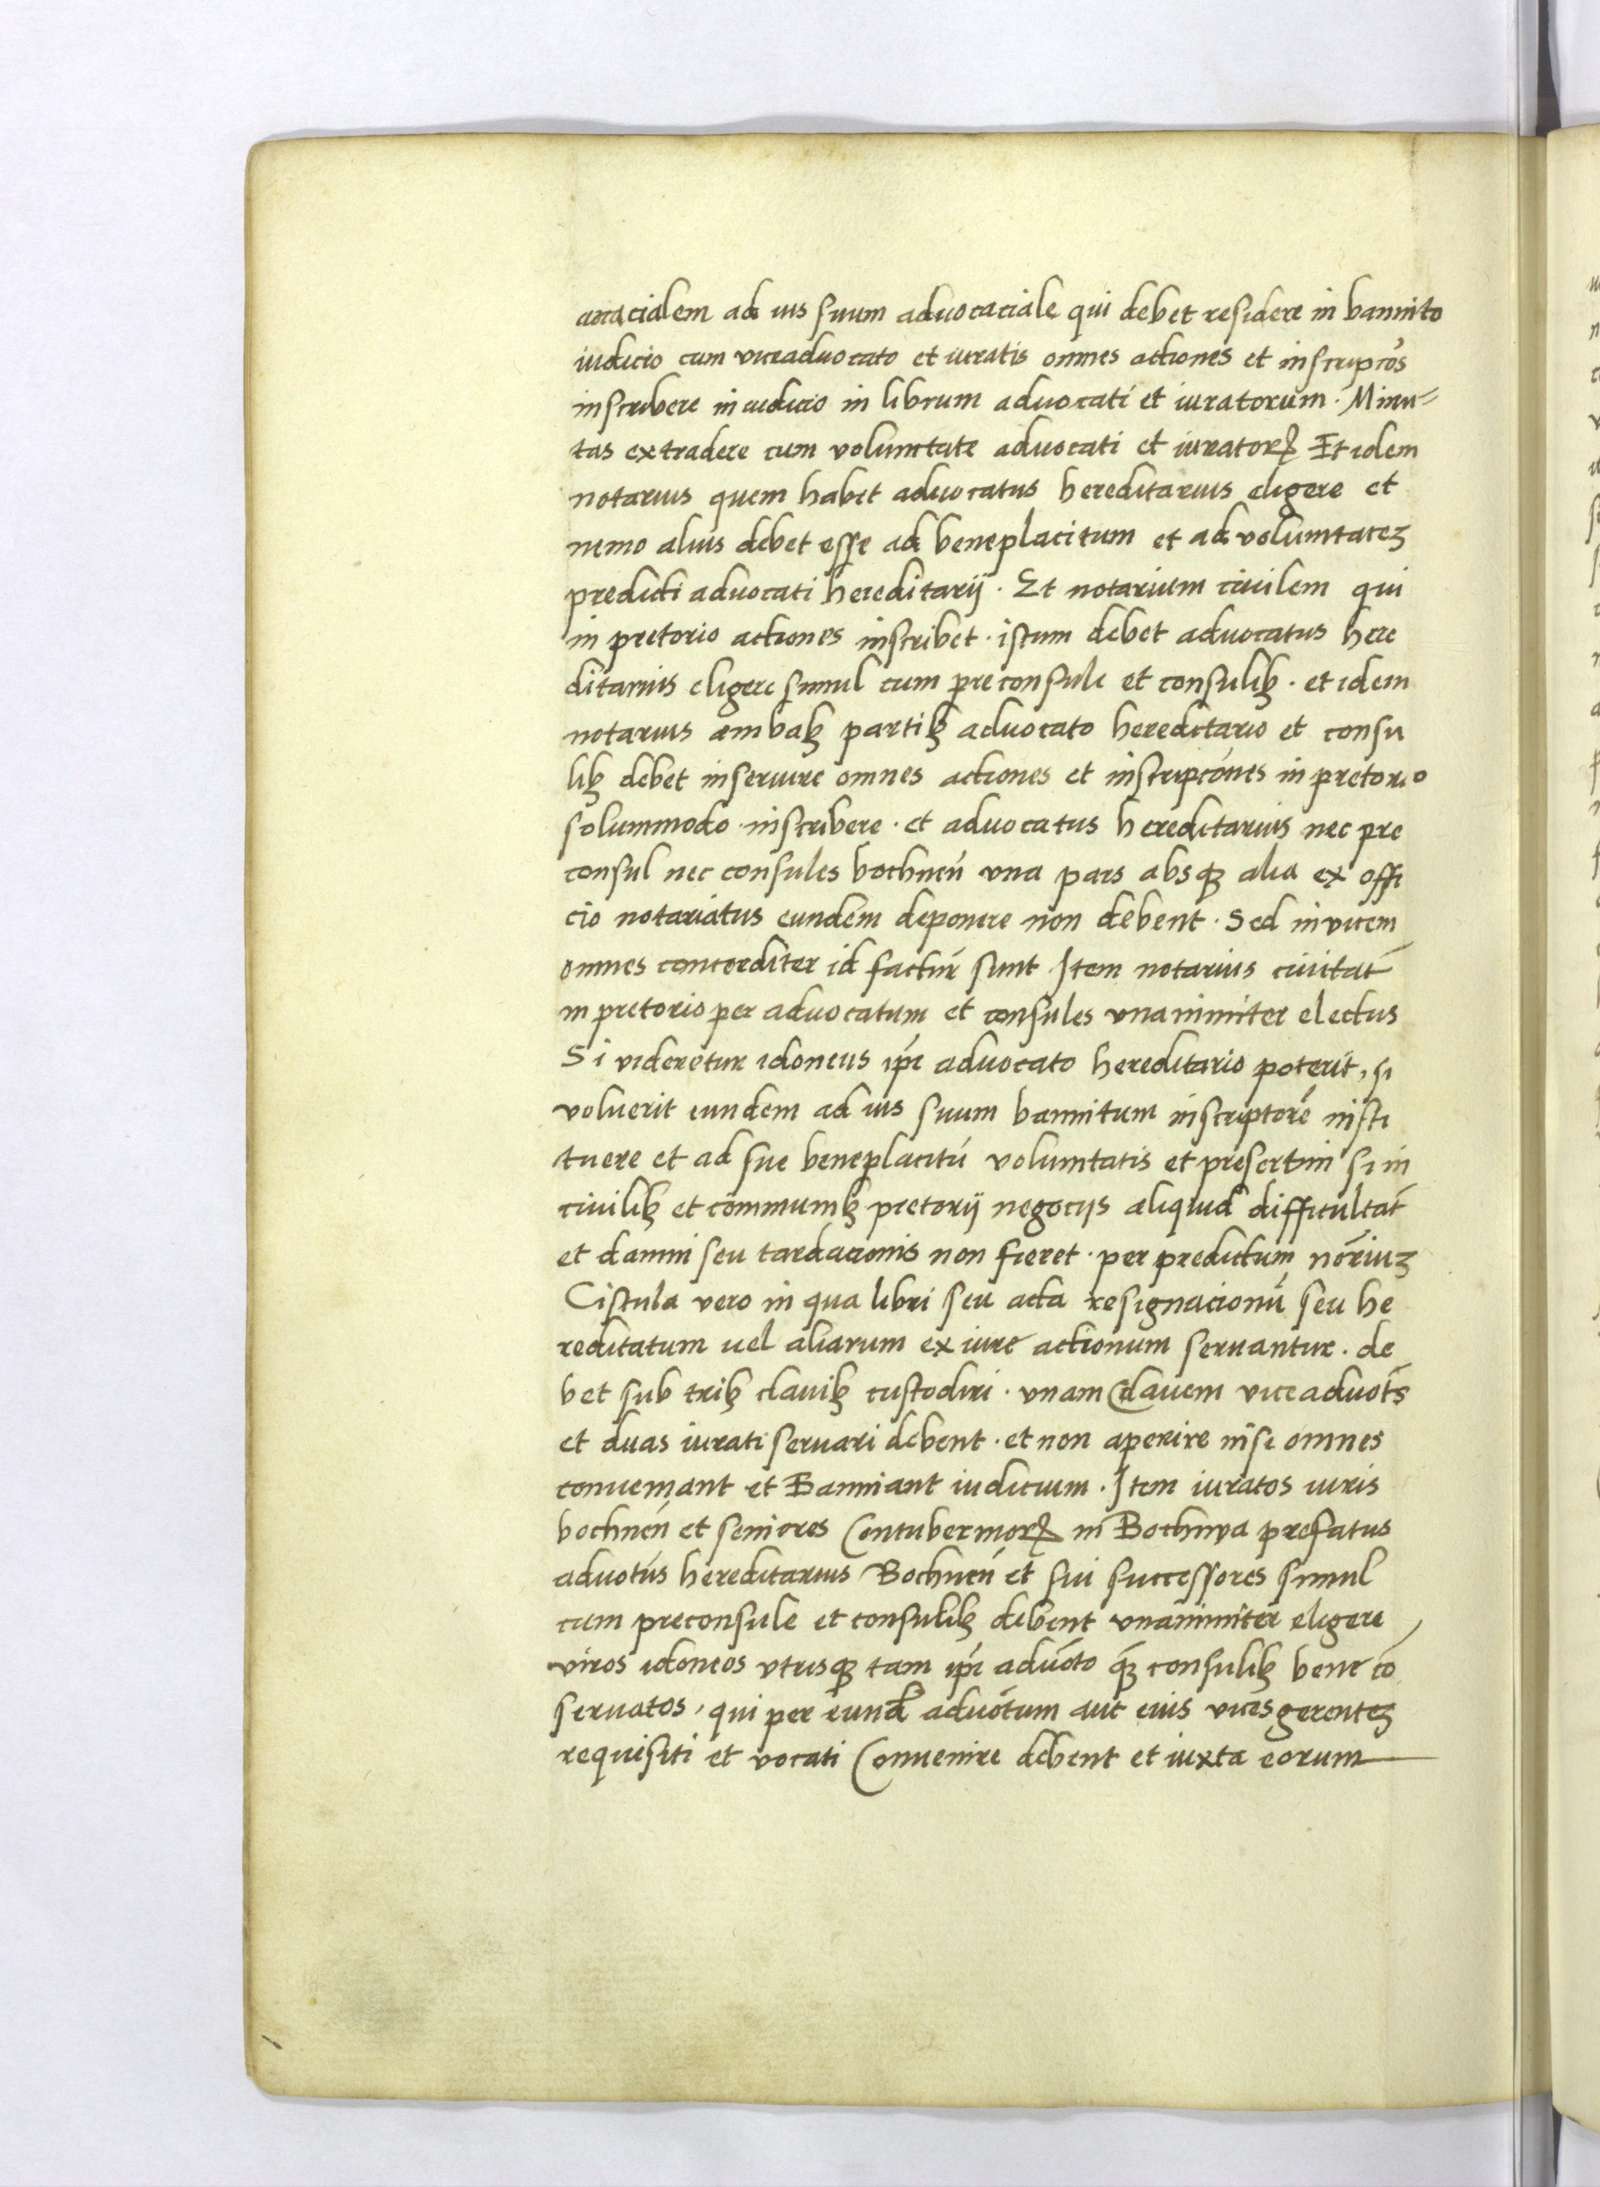 cialem ad ius suum aduocaciale qui debet residere in bannito
iudicio cum viceaduocato et iuratis omnes actiones et inscripcōs
inscribere in iudicio in librum aduocati et iuratorum. Minu=
tas extradere cum voluntate aduocati et iuratorꝝ Et idem
notarius quem habet aduocatus hereditarius eligere et
nemo alius debet esse ad beneplacitum et ad voluntateꝫ
predicti aduocati hereditarij. Et notarium ciuilem qui
in pretorio actiones inscribet. istum debet aduocatus here
ditarius eligere simul cum preconsule et consulibꝫ. et idem
notarius ambabꝫ partibꝫ aduocato hereditario et consu
libꝫ debet inseruire omnes actiones et inscripcōnes in pretorio
solummodo. inscribere. et aduocatus hereditarius nec pre
consul nec consules bochneñ vna pars absqꝫ alia ex offi
cio notariatus eundem deponere non debent. Sed inuicem
omnes concorditer id factur̄ sunt Item notarius ciuitat̄
in pretorio per aduocatum et consules vnanimiter electus
Si videretur idoneus ip̄i aduocato hereditario poterit, si
voluerit eundem ad ius suum bannitum inscriptorē insti
tuere et ad sue beneplacitū voluntatis et presertim si in
ciuilibꝫ et communibꝫ pretorij negocijs aliquid difficultat̄
et damni seu tardacionis non fieret. per predictum not̄riuꝫ
Cistula vero in qua libri seu acta resignacionū seu he
reditatum uel aliarum ex iure actionum seruantur. de
bet sub tribꝫ clauibꝫ custodiri. vnam Clauem viceaduot̄s
et duas iurati seruari debent. et non aperire nisi omnes
conueniant et Banniant iudicium. Item iuratos iuris
bochneñ et seniores Contuberniorꝝ in Bochnya prefatus
aduot̄us hereditarius Bochneñ et sui successores simul
cum preconsule et consulibꝫ debent vnanimiter eligere
viros idoneos vtrisqꝫ tam ip̄i aduōto qꝫ̄ consulibꝫ bene cō
seruatos, qui per eund̄ aduōtum aut eius vices gerenteꝫ
requisiti et vocati Conuenire debent et iuxta eorum